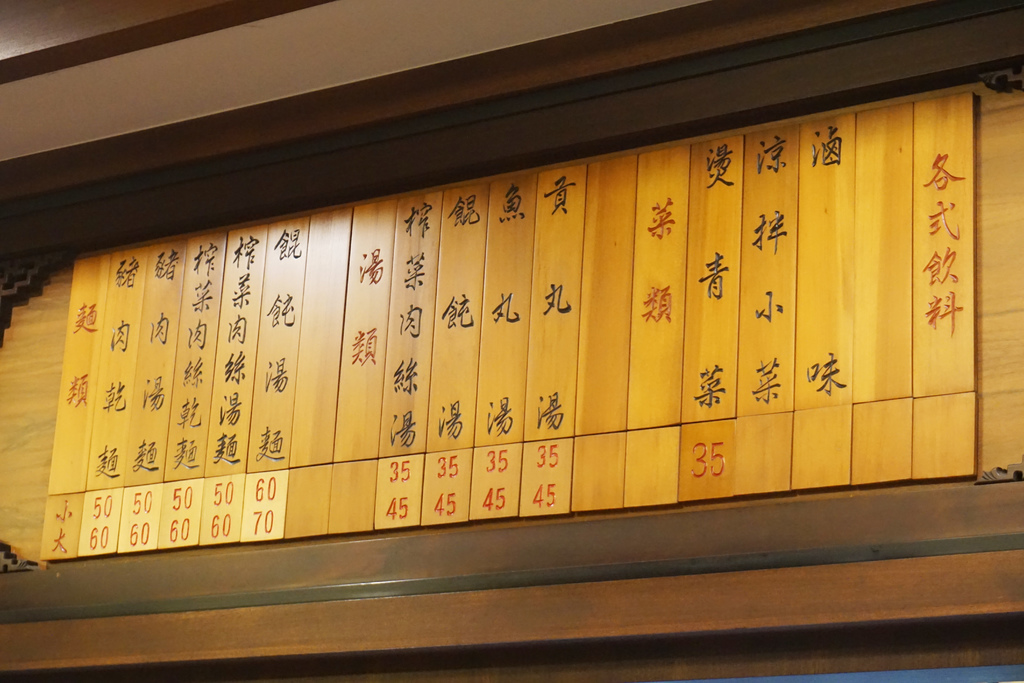 麵類
小
大
豬肉乾麵
50
60
豬肉湯麵
50
60
榨菜肉絲乾麵
50
60
榨菜肉絲湯麵
50
60
餛飩湯麵
60
70
湯類
榨菜肉絲湯
35
45
餛飩湯
35
45
魚丸湯
35
45
貢丸湯
35
45
菜類
燙青菜
35
涼拌小菜
滷味
各式飲料